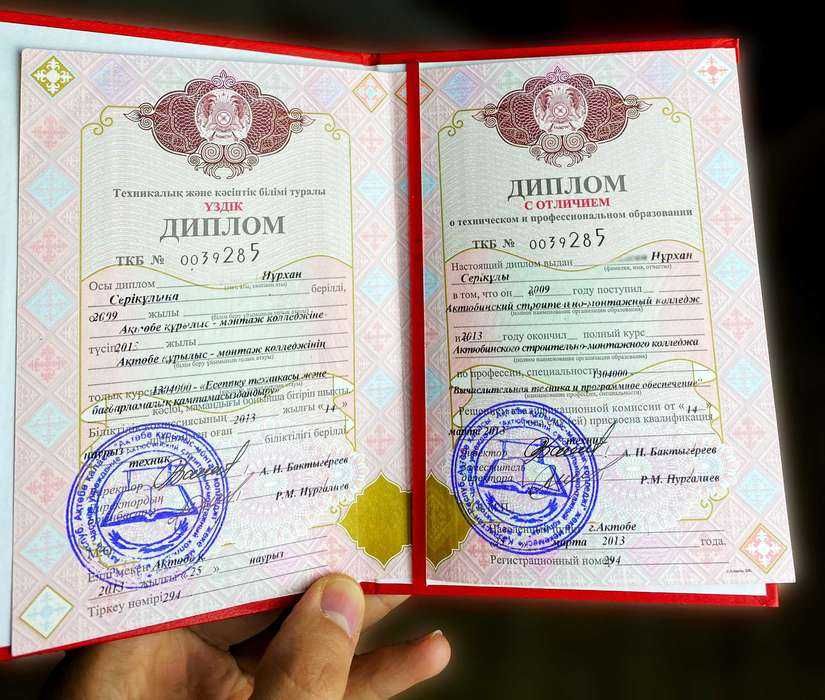 Техникалық және кәсіптік білімі туралы
ҮЗДІК
ДИПЛОМ
ТКБ № 0039285
Осы диплом Нұрхан
Серікұлына берілді,
2009 жылы
Ақтөбе құрылыс - монтаж колледжіне
түсіп 2013 жылы
Ақтөбе құрылыс - монтаж колледжінің
толық курсы 1304000 - «Есептеу техникасы және
бағбарламалық қамтамасыздандыру»
кәсібі, мамандығы бойынша бітіріп шықты.
Біліктілік комиссиясының 2013 жылғы «14»
наурыз оған біліктілігі берілді
техник
директор А. Н. Бактыгереев
директордың Р.М. Нұргалиев
М.О.
Елді мекен Ақтөбе қ.
2013 жылғы «25» наурыз
Тіркеу нөмірі 294
ДИПЛОМ
С ОТЛИЧИЕМ
о техническом и профессиональном образовании
ТКБ № 0039285
Настоящий диплом выдан Нұрхан
Серікұлы (фамилия, имя, отчество)
в том, что он 2009 году поступил
Актюбинский строительно-монтажный колледж
(полное наименование организации образования)
и 2013 году окончил полный курс
Актюбинского строительно-монтажного колледжа
(полное наименование организации образования)
по профессии, специальности 1304000-
"Вычислительная техника и программное обеспечение"
Решением квалификационной комиссии от «14»
марта 2013 присвоена квалификация
техник
директор А. Н. Бактыгереев
Заместитель
директора Р.М. Нургалиев
М.П.
Населенный пункт г.Актобе
марта 2013 года.
Регистрационный номер 294